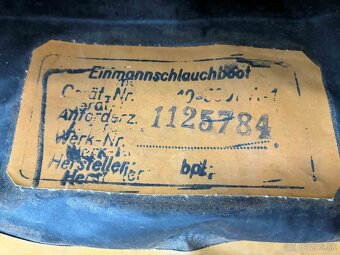 Einmannschlauchboot
Gerät-Nr.
Anforderz.
1125784
Werk-Nr.
Hersteller: bpt.